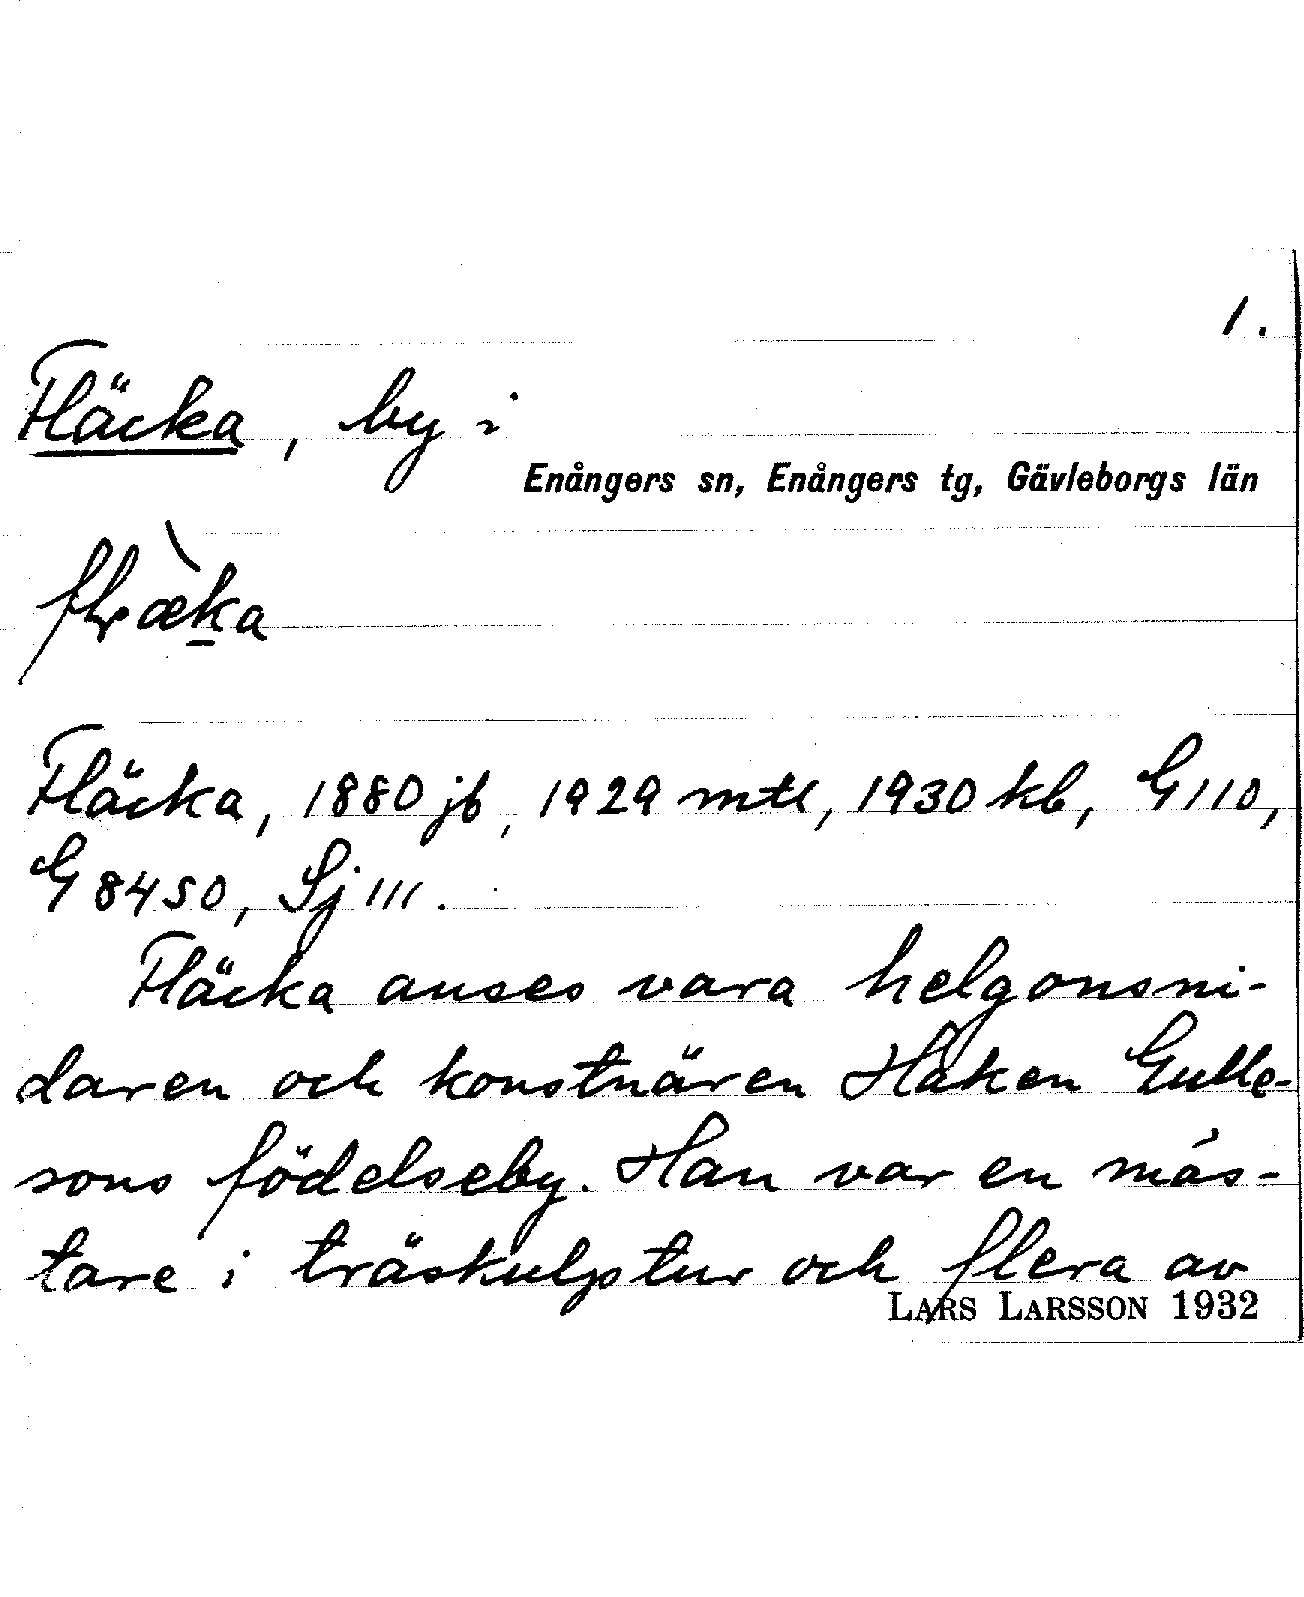 1.
Fläcka, by i
Enångers sn, Enångers tg, Gävleborgs län
Fläcka, 1880 jb, 1929 mtl, 1930 kb, G 110,
G 8450, Sj 111.
Fläcka anses vara helgonsni-
daren och konstnären Håken Gulle-
sons födelseby. Han var en mäs-
tare i träskulptur och flera av
LARS LARSSON 1932